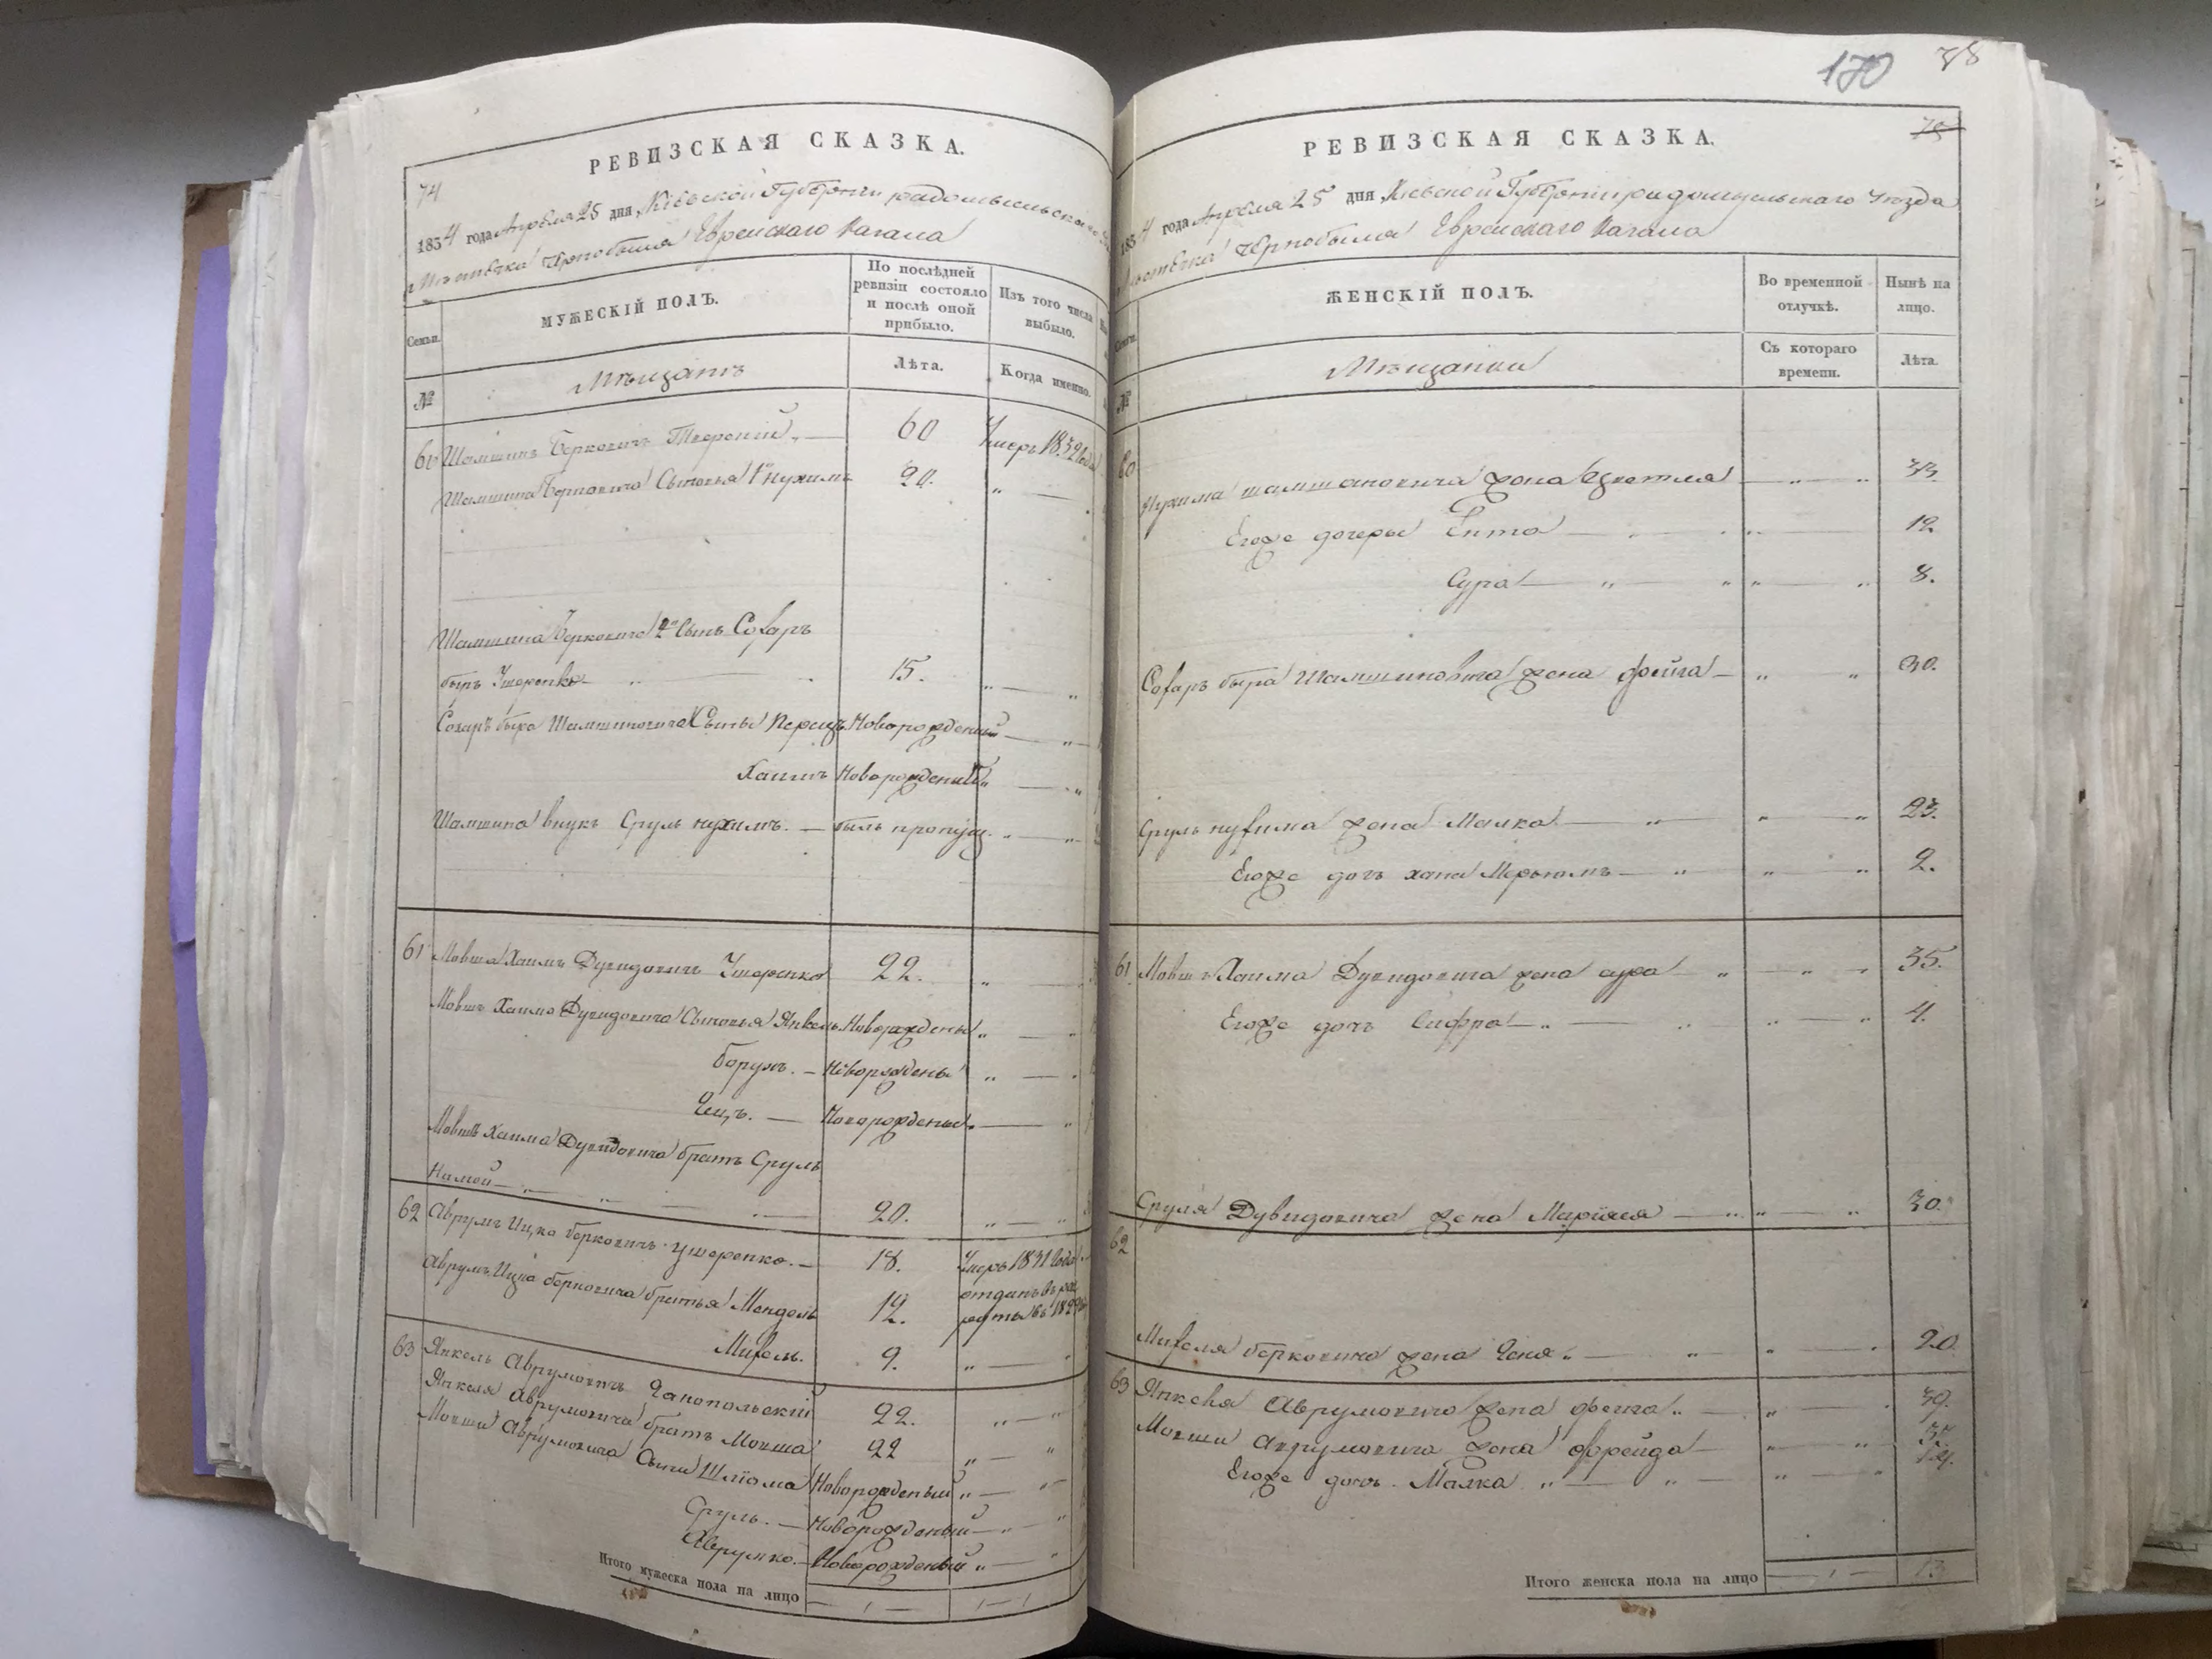 74
РЕВИЗСКАЯ СКАЗКА.
1834 года Апреля 25 дня, Кіевской Губерніи радомысльскаго
Мѣстечка Чернобыля Еврейскаго Кагала
Семьи.
МУЖЕСКІЙ ПОЛЪ.
По послѣдней ревизіи состояло и послѣ оной прибыло.
Изъ того числа выбыло.
№
Мѣщанъ
Лѣта.
Когда именно.
60 Шамшинъ Берковичъ Тверскій 60 Умеръ 1832 года
Шамшина Берковича Сыновья 1й Нухимъ 20.
Шамшина Берковича 2й Сынъ Сохаръ
беръ Ушеренко 15.
Сохаръ бера Шамшиновича Сыны Перецъ Новорожденный
Хаимъ Новорожденный
Шамшина внукъ Сруль нухимъ. — былъ пропущ.
61 Мовша Хаимъ Дувидовичъ Ушеренко 22.
Мовши Хаима Дувидовича Сыновья Янкель Новорожденый
Борухъ. — Новорожденый
Новорожденый
Мовши Хаима Дувидовича братъ Сруль
20.
62 Аврумъ Ицко берковичъ Ушеренко. — 18. Умеръ 1831 года
Аврумъ Ицка берковича братья Мендель 12. отданъ въ рекруты въ
Михель. 9.
63 Янкель Аврумовичъ Чанопольскій 22.
Янкеля Аврумовича братъ Мовша 22
Мовши Аврумовича Сыны Шліома Новорожденый
Сруль. — Новорожденый
Аврумко. — Новорожденый
Итого мужеска пола на лицо
170 78
75
РЕВИЗСКАЯ СКАЗКА.
1834 года Апреля 25 дня, Кіевской Губерніи радомысльскаго уезда
Мѣстечка Чернобыля Еврейскаго Кагала
Семьи.
ЖЕНСКІЙ ПОЛЪ.
Во временной отлучкѣ.
Нынѣ на лицо.
№
Мѣщанки
Съ котораго времени.
Лѣта.
60
Нухима шамшановича жена Цветля 33.
Егоже дочеры Ента 12.
Сура 8.
Сохаръ бера Шамшиновича жена фейга 30.
Сруль нухима жена Малка 23.
Егоже дочъ хана Мерьямъ 2.
61 Мовши Хаима Дувидовича жена сура 35.
Егоже дочъ Сифра 4.
Сруля Дувидовича жена Маріяся 30.
62
Михеля берковича жена Ченя 20.
63 Янкеля Аврумовича жена фейга 39.
Мовши Аврумовича жена фрейда
Егоже дочъ. Малка 14.
Итого женска пола на лицо 13